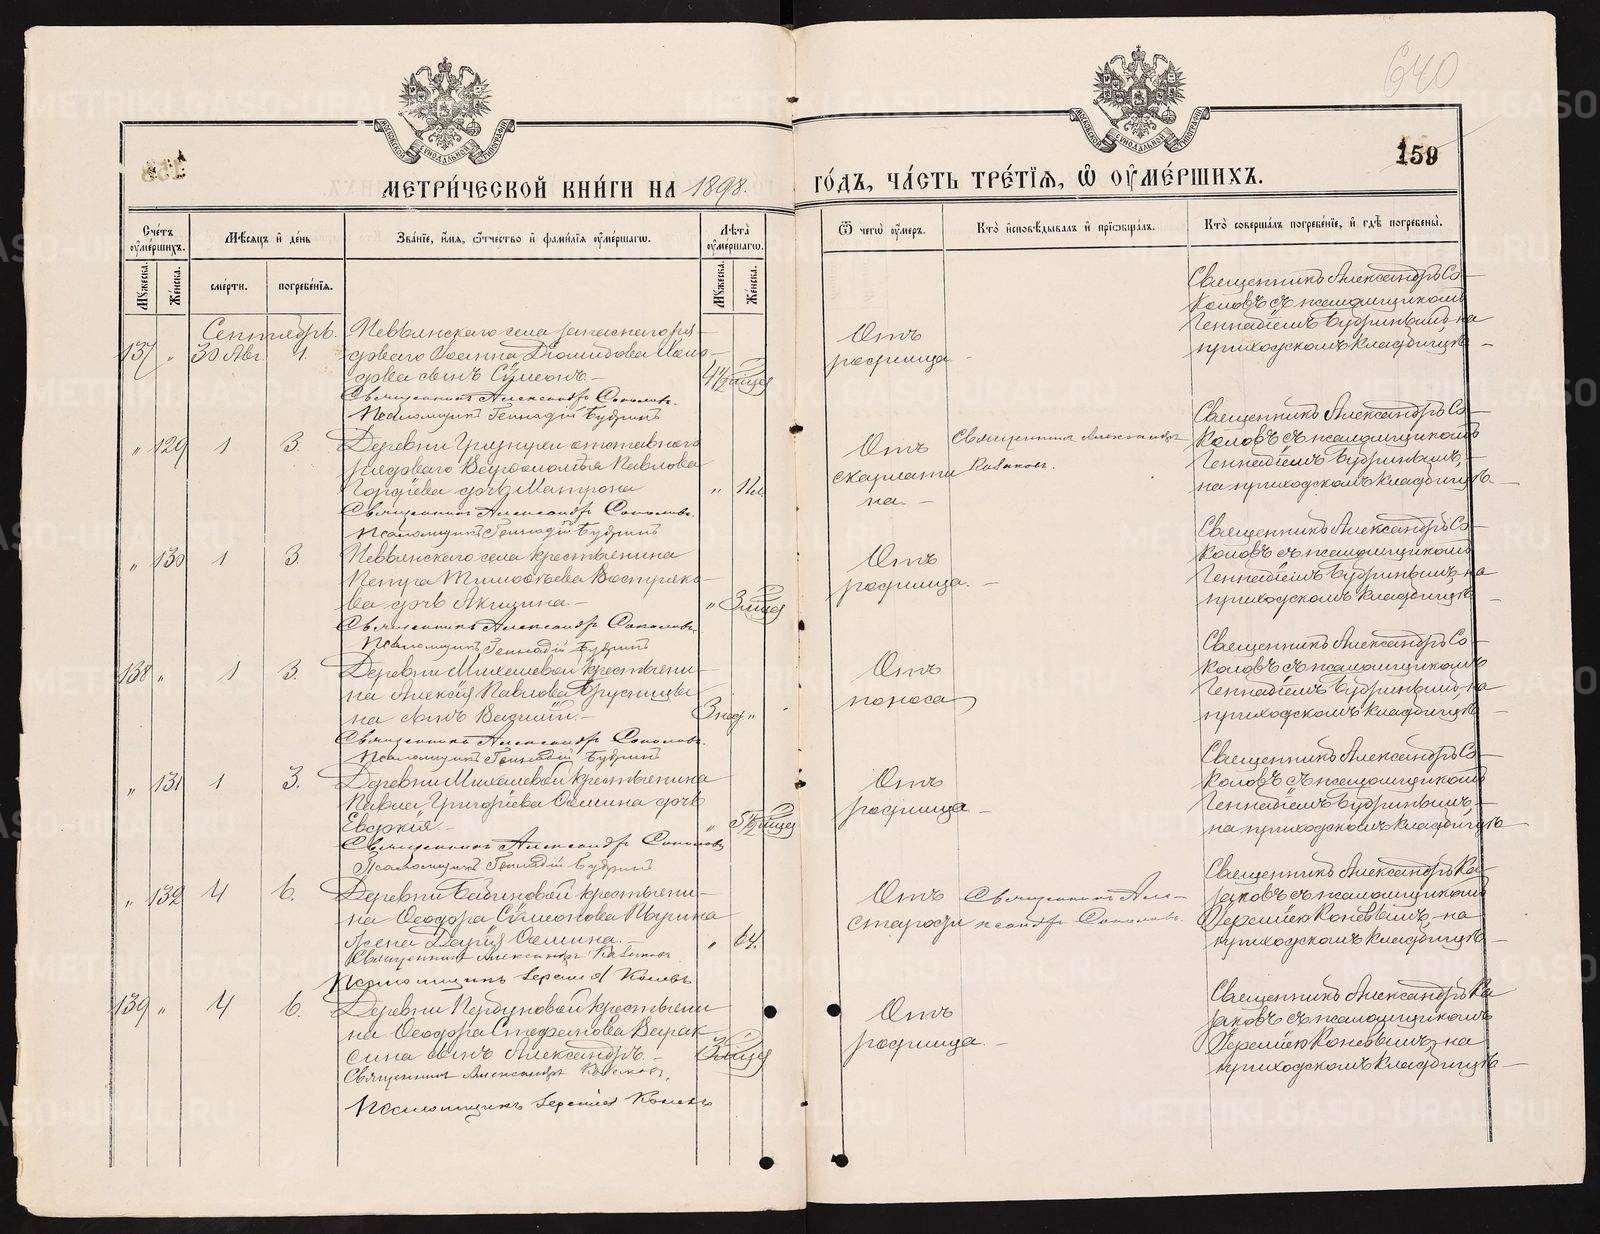 640
159
МЕТРИ́ЧЕСКОЙ КНИ́ГИ НА 1898.
ГО́ДЪ, ЧА́СТЬ ТРЕ́ТІЯ, Ѽ ОУ҆МЕ́РШИХЪ.
Сче́тъ оу҆ме́ршихъ.
Мѣ́сяцъ и҆ де́нь
Зва́нїе, и҆́мя, ѻ҆́тчество и҆ фами́лїя оу҆ме́ршагѡ.
Лѣ́та оу҆ме́ршагѡ.
Ѿ чегѡ̀ оу҆́меръ.
Кто̀ и҆сповѣ́дывалъ и҆ прїѡбща́лъ.
Кто̀ соверша́лъ погребе́нїе, и҆ гдѣ̀ погребены̀.
Му́жеска.
Же́нска.
сме́рти.
погребе́нїя.
Му́жеска.
Же́нска.
Сентябрь.
137 " 30 Авг. 1.
Невьянскаго села запаснаго ря-
доваго Іоанна Діомидова
сынъ Сѵмеонъ
Священникъ Александръ Соколовъ.
Псаломщикъ Геннадій Будринъ
Отъ
родимца
Священникъ Александръ Со-
коловъ съ псаломщикомъ
Геннадіемъ Будринымъ, на
приходскомъ кладбищѣ
" 129 1 3
Деревни отставного
рядоваго Варѳоломѣя Павлова
Гордѣева дочь Матрона
" 11
Священникъ Александръ Соколовъ.
Псаломщикъ Геннадій Будринъ
Отъ
скарлати
на.
Священникъ Александръ
Казаковъ.
Священникъ Александръ Со-
коловъ съ псаломщикомъ
Геннадіемъ Будринымъ,
на приходскомъ кладбищѣ.
" 130 1 3.
Невьянскаго села крестьянина
Петра Тимоѳѣева Вострико-
ва дочь Акилина
" 3
Священникъ Александръ Соколовъ
Псаломщикъ Геннадій Будринъ
Отъ
родимца.
Священникъ Александръ Со-
коловъ съ псаломщикомъ
Геннадіемъ Будринымъ, на
приходскомъ кладбищѣ
138 " 1 3.
Деревни Михалевой крестьяни-
на Алексія Павлова Брусницы-
на сынъ Василій.
3 нед. "
Священникъ Александръ Соколовъ.
Псаломщикъ Геннадій Будринъ
Отъ
поноса
Священникъ Александръ Со-
коловъ съ псаломщикомъ
Геннадіемъ Будринымъ, на
приходскомъ кладбищѣ
" 131 1 3.
Деревни Михалевой крестьянина
Павла Григорьева дочь
Евдокія
" 5½
Священникъ Александръ Соколовъ
Псаломщикъ Геннадій Будринъ
Отъ
родимца
Священникъ Александръ Со-
коловъ съ псаломщикомъ
Геннадіемъ Будринымъ,
на приходскомъ кладбищѣ
" 132 4 6.
Деревни Бабиновой крестьяни-
на Ѳеодора Сѵмеонова
жена Дарія
" 64.
Священникъ Александръ Казаковъ
Псаломщикъ Іеремія Коневъ
Отъ
старости
Священникъ Але-
ксандръ Соколовъ.
Священникъ Александръ Ка-
заковъ съ псаломщикомъ
Іереміею Коневымъ, на
приходскомъ кладбищѣ
139 " 4 6.
Деревни Первуновой крестьяни
на Ѳеодора Стефанова Варак-
сина сынъ Александръ.
3
Священникъ Александръ Казаковъ,
Псаломщикъ Іеремія Коневъ
Отъ
родимца.
Священникъ Александръ Ка
заковъ съ псаломщикомъ
Іереміею Коневымъ, на
приходскомъ кладбищѣ